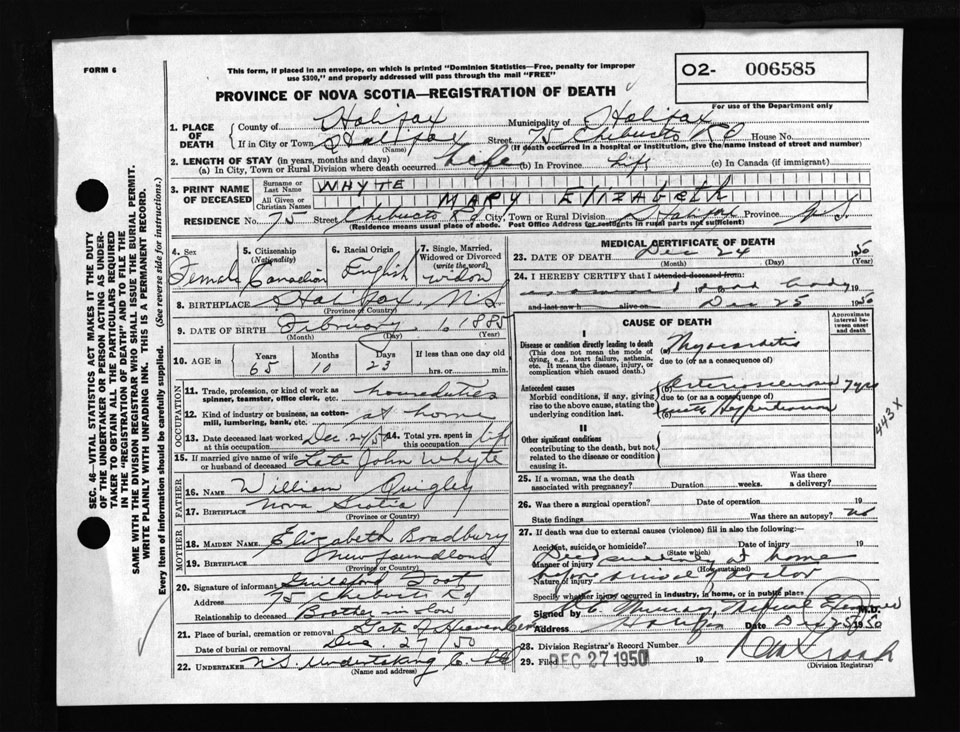 FORM 6
This form, if placed in an envelope, on which is printed "Dominion Statistics—Free, penalty for improper
use $300," and properly addressed will pass through the mail "FREE"
O2- 006585
For use of the Department only
PROVINCE OF NOVA SCOTIA—REGISTRATION OF DEATH
1. PLACE OF DEATH
County of Halifax Municipality of Halifax
If in City or Town Halifax Street 75 Chebucto Rd House No.
(Name) (If death occurred in a hospital or institution, give the name instead of street and number)
2. LENGTH OF STAY (in years, months and days)
(a) In City, Town or Rural Division where death occurred Life (b) In Province Life (c) In Canada (if immigrant)
3. PRINT NAME OF DECEASED
Surname or Last Name WHYTE
All Given or Christian Names MARY ELIZABETH
RESIDENCE No. 75 Street Chebucto Rd City, Town or Rural Division Halifax Province N S.
(Residence means usual place of abode. Post Office Address for residents in rural parts not sufficient)
4. Sex Female
5. Citizenship (Nationality) Canadian
6. Racial Origin English
7. Single, Married, Widowed or Divorced (write the word) widow
8. BIRTHPLACE Halifax, N.S.
(Province or Country)
9. DATE OF BIRTH February 1 1885
(Month) (Day) (Year)
10. AGE in Years Months Days If less than one day old
65 10 23 hrs. or min.
OCCUPATION
11. Trade, profession, or kind of work as spinner, teamster, office clerk, etc. houseduties
12. Kind of industry or business, as cotton-mill, lumbering, bank, etc. at home
13. Date deceased last worked at this occupation Dec. 24/50 14. Total yrs. spent in this occupation life
15. If married give name of wife or husband of deceased Late John Whyte
FATHER
16. NAME William Quigley
17. BIRTHPLACE Nova Scotia
(Province or Country)
MOTHER
18. MAIDEN NAME Elizabeth Bradbury
19. BIRTHPLACE Newfoundland
(Province or Country)
20. Signature of informant Guildford Foot
Address 75 Chebucto Rd
Relationship to deceased Brother in law
21. Place of burial, cremation or removal Gate of Heaven Cem
Date of burial or removal Dec. 27/50
22. UNDERTAKER N.S. Undertaking Co. Ltd
(Name and address)
MEDICAL CERTIFICATE OF DEATH
23. DATE OF DEATH Dec 24 1950
(Month) (Day) (Year)
24. I HEREBY CERTIFY that I attended deceased from
dead body
and last saw h alive on Dec 25 1950
CAUSE OF DEATH
Approximate interval between onset and death
I
Disease or condition directly leading to death
(This does not mean the mode of dying, e.g., heart failure, asthenia, etc. It means the disease, injury, or complication which caused death.)
(a) Myocarditis
due to (or as a consequence of)
Antecedent causes
Morbid conditions, if any, giving rise to the above cause, stating the underlying condition last.
(b) Arteriosclerosis 7 yrs
due to (or as a consequence of)
(c) with Hypertension
443 X
II
Other significant conditions
contributing to the death, but not related to the disease or condition causing it.
25. If a woman, was the death associated with pregnancy? Duration weeks. Was there a delivery?
26. Was there a surgical operation? Date of operation 19
State findings Was there an autopsy? no
27. If death was due to external causes (violence) fill in also the following:—
Accident, suicide or homicide? Date of injury 19
(State which)
Manner of injury Died suddenly at home
(How sustained)
Nature of injury before arrival of doctor
Specify whether injury occurred in industry, in home, or in public place
Signed by Murray, Medical Examiner M.D.
Address Halifax Date Dec 25 1950
28. Division Registrar's Record Number
29. Filed DEC 27 1950 19
(Division Registrar)
SEC. 46—VITAL STATISTICS ACT MAKES IT THE DUTY
OF THE UNDERTAKER OR PERSON ACTING AS UNDER-
TAKER TO OBTAIN ALL THE PARTICULARS REQUIRED
IN THE "REGISTRATION OF DEATH" AND TO FILE THE
SAME WITH THE DIVISION REGISTRAR WHO SHALL ISSUE THE BURIAL PERMIT.
WRITE PLAINLY WITH UNFADING INK. THIS IS A PERMANENT RECORD.
Every item of information should be carefully supplied. (See reverse side for instructions.)